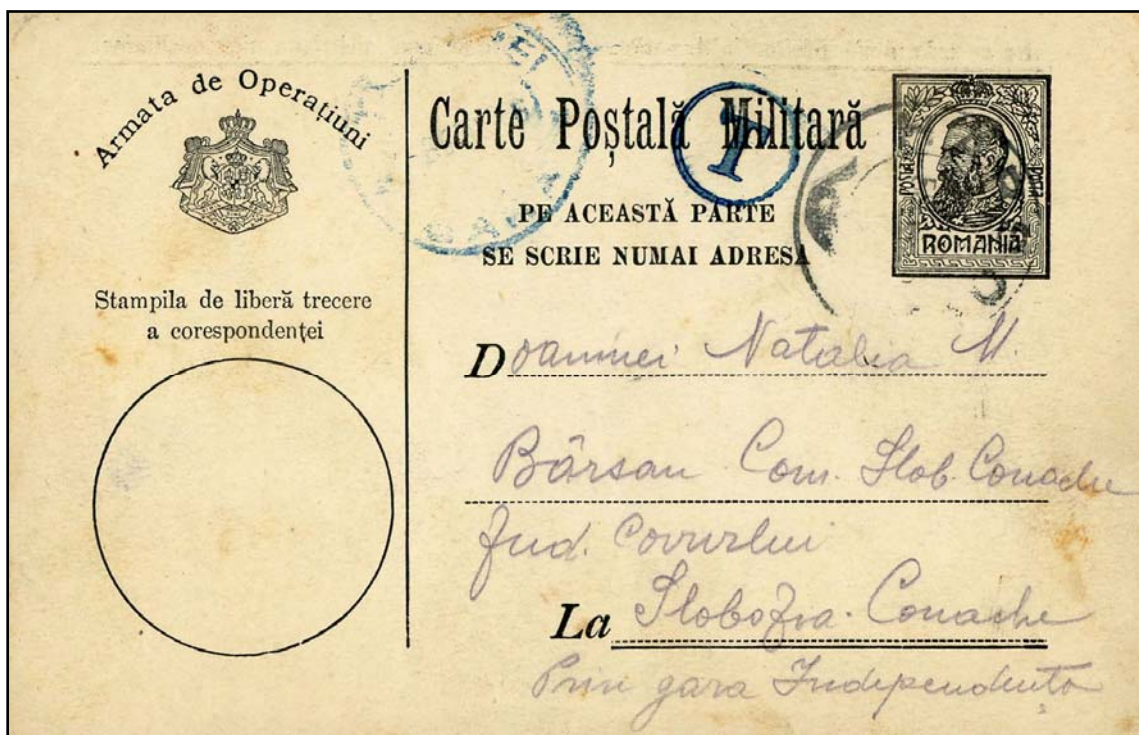 Armata de Operațiuni
Stampila de liberă trecere
a corespondenței
Carte Poștală Militară
T
PE ACEASTĂ PARTE
SE SCRIE NUMAI ADRESA
POSTA
ROMANIA
Doamnei Natalia M.
Bârsan Com. Slob. Conache
Jud. Covurlui
La Slobozia-Conache
Prin gara Independența